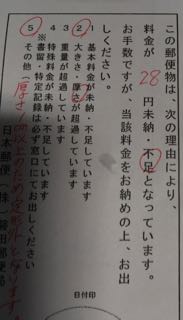 この郵便物は、次の理由により、
料金が 28 円未納・不足となっています。
お手数ですが、当該料金をお納めの上、お出
しください。
1 基本料金が未納・不足しています
2 大きさ・厚さが超過しています
3 重量が超過しています
4 特殊料金が未納・不足しています
※書留・特定記録は必ず窓口にてお出しください
5 その他(厚さ1cm以上のため定形外となります。
日本郵便(株) 郵便局
日付印